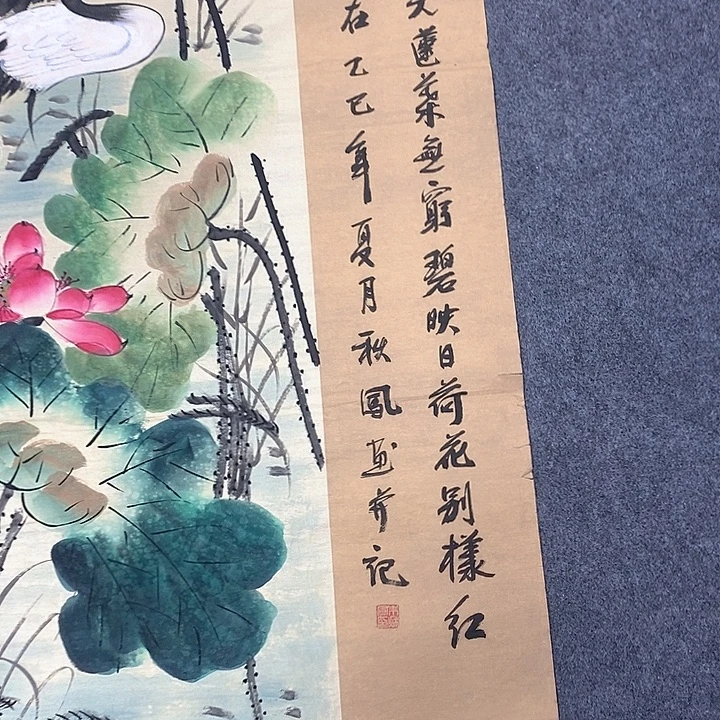 天蓮葉無窮碧映日荷花別樣紅
在乙巳年夏月秋鳳画并記